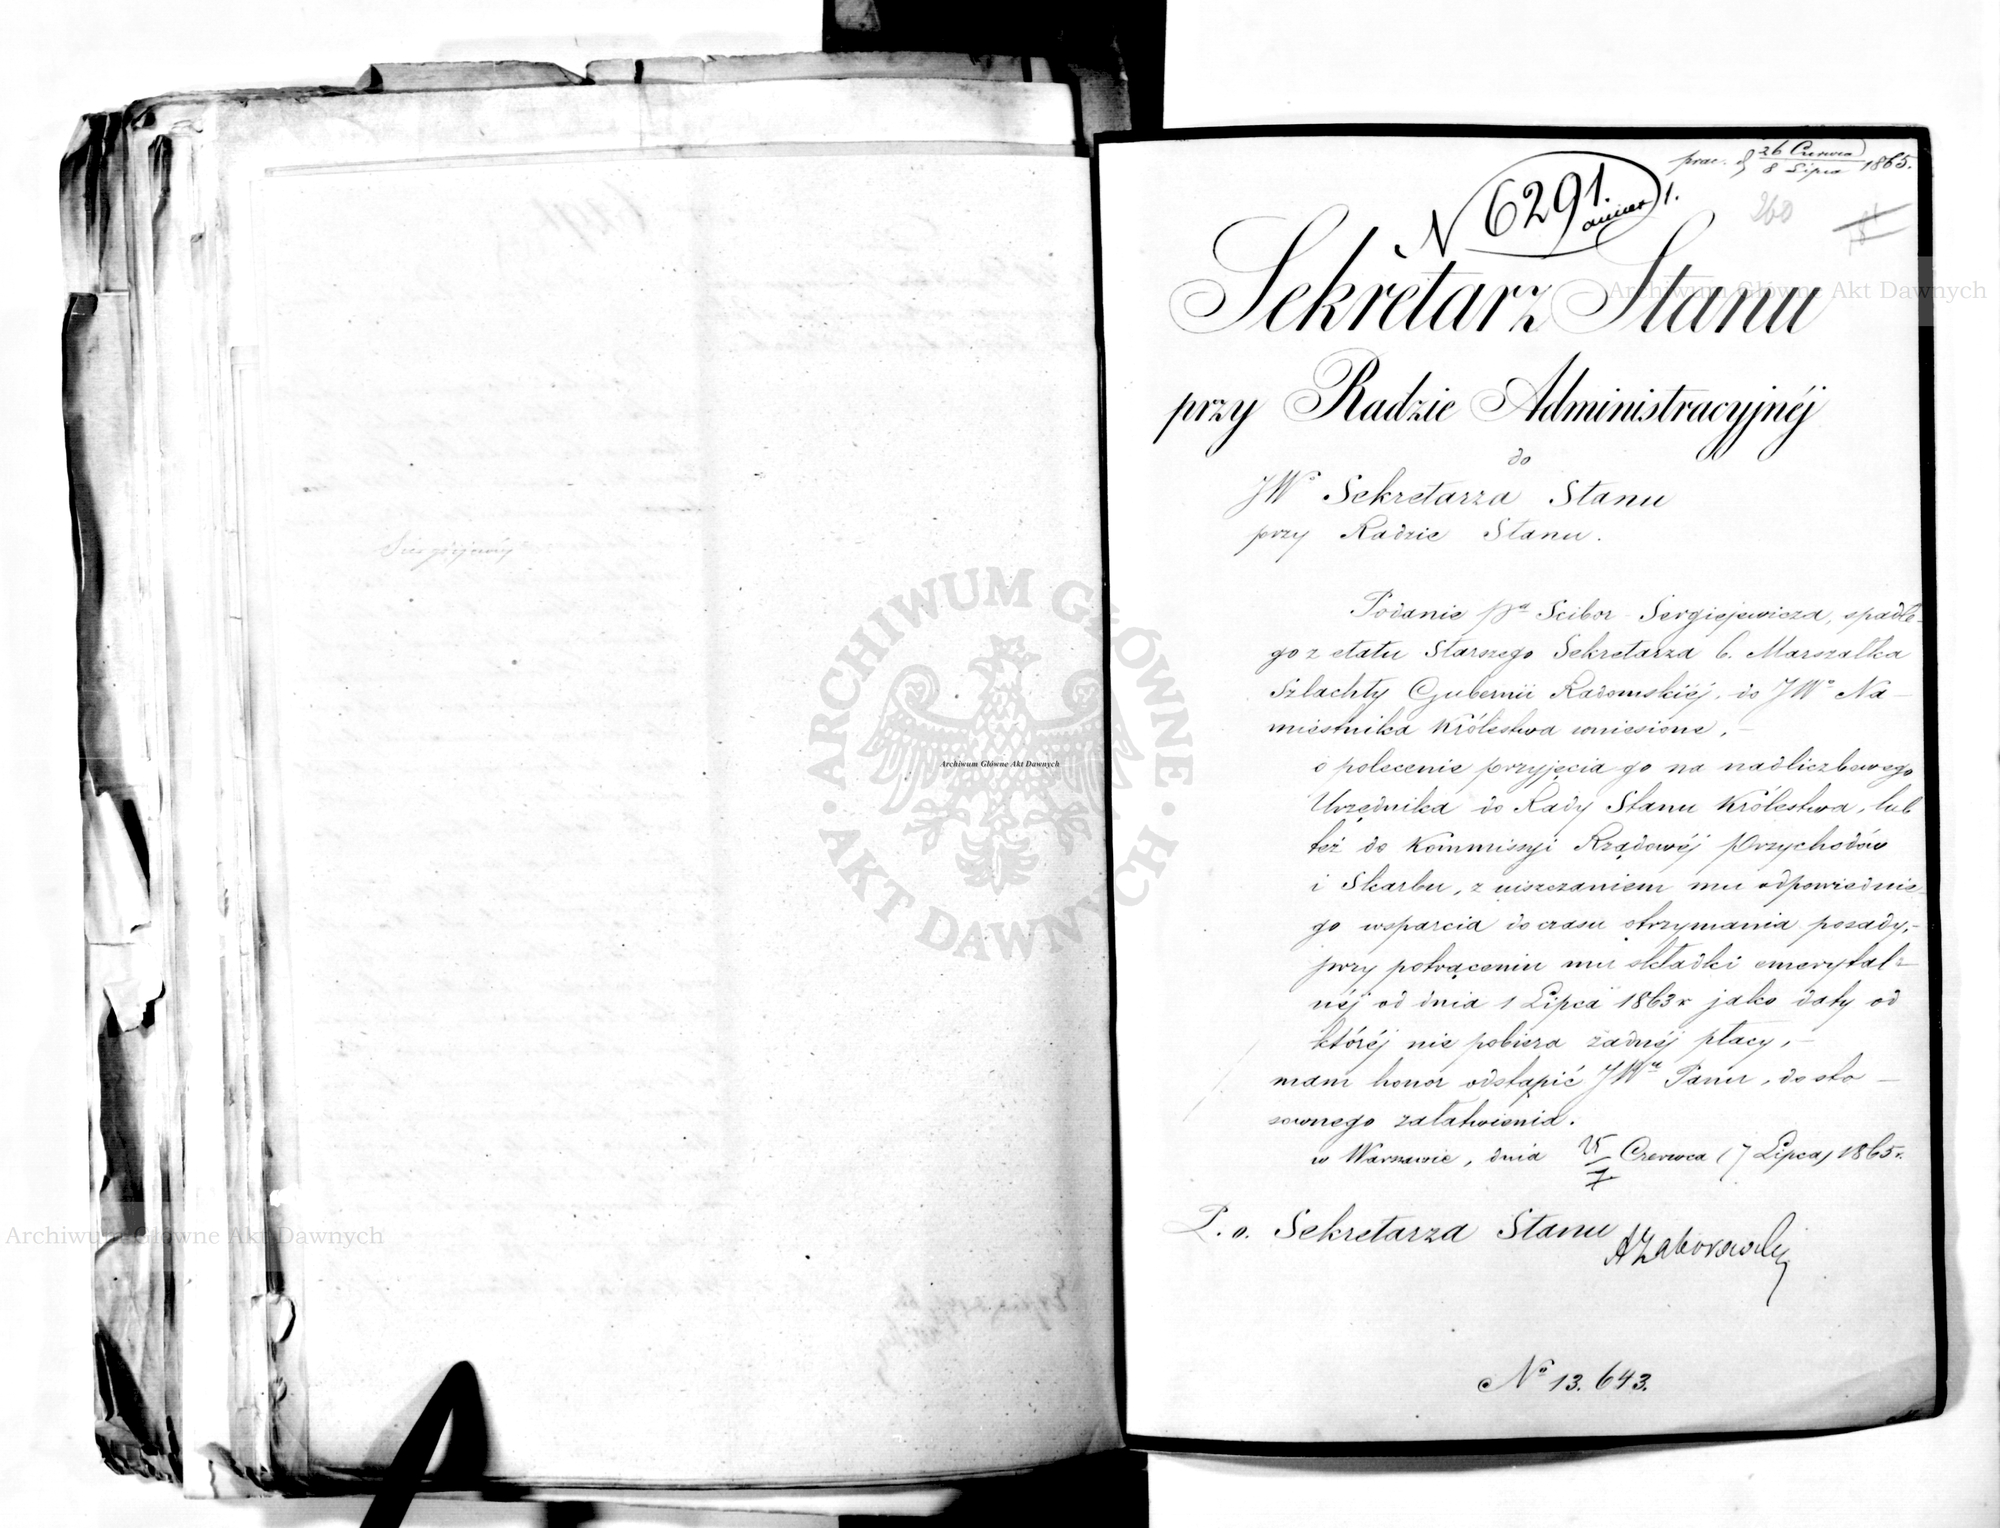 prae. d 26 Czerwca / 8 Lipca 1865.
N 6291. 1.
260
Sekretarz Stanu
przy Radzie Administracyjnéj
do
JWo Sekretarza Stanu
przy Radzie Stanu.
Podanie Pa Scibor-Sergiejewicza, spadłe-
go z etatu Starszego Sekretarza b. Marszałka
Szlachty Gubernii Radomskiéj, do JWo Na-
miestnika Królestwa wniesione, -
o polecenie przyjęcia go na nadliczbowego
Urzędnika do Rady Stanu Królestwa, lub
też do Kommissyi Rządowéj Przychodów
i Skarbu, z uiszczaniem mu odpowiednie-
go wsparcia do czasu otrzymania posady, -
przy potrąceniu mu składki emerytal-
néj od dnia 1 Lipca 1863 r jako daty od
któréj nie pobiera żadnéj płacy, -
mam honor odstąpić JWu Panu, do sto-
sownego załatwienia.
w Warszawie, dnia 25/7 Czerwca (7 Lipca) 1865 r.
P. o. Sekretarza Stanu
AZaborowski
No 13.643.
Archiwum Główne Akt Dawnych
Archiwum Główne Akt Dawnych
Archiwum Główne Akt Dawnych
ARCHIWUM GŁÓWNE AKT DAWNYCH